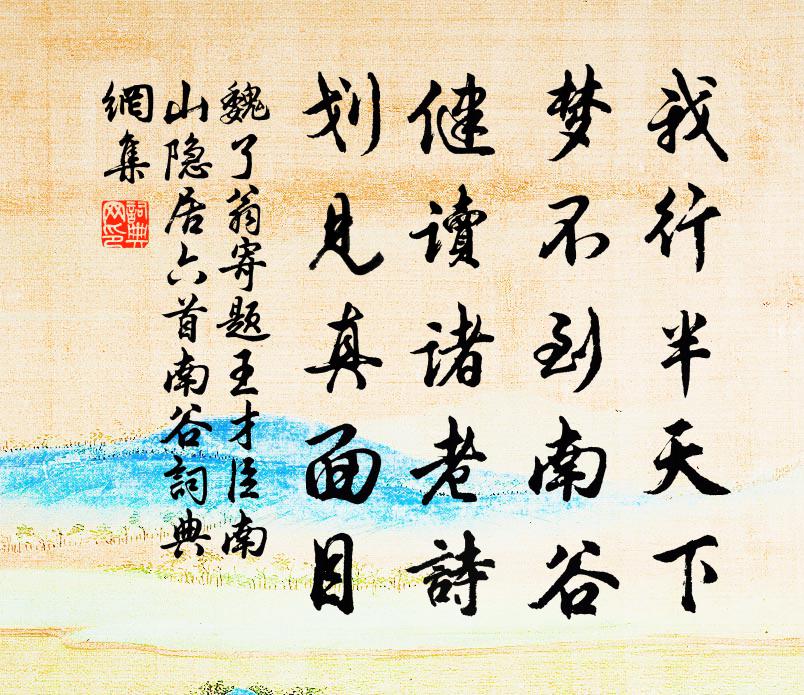 我行半天下
梦不到南谷
健讀诸老詩
划見真面目
魏了翁寄题王才臣南
山隐居六首南谷詞典
網集
詞典
网印